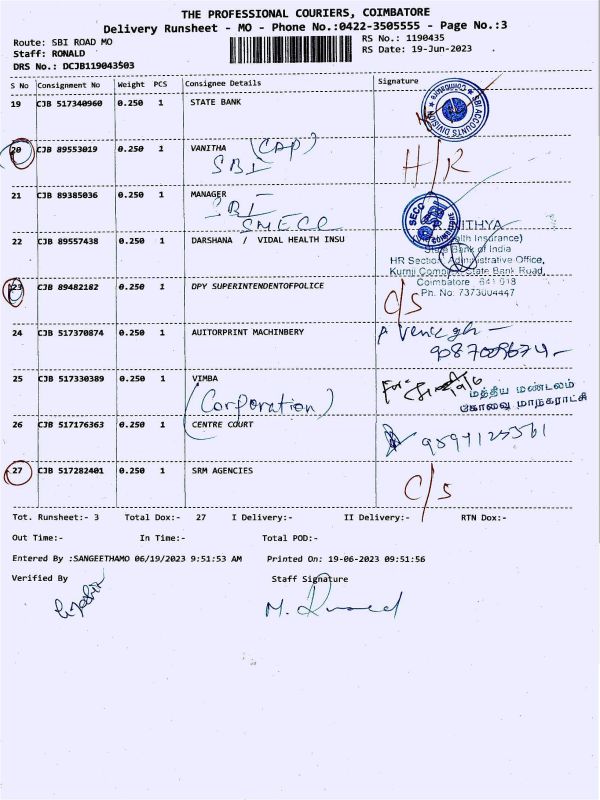 THE PROFESSIONAL COURIERS, COIMBATORE
Delivery Runsheet - MO - Phone No.:0422-3505555 - Page No.:3
Route: SBI ROAD MO
RS No.: 1190435
Staff: RONALD
RS Date: 19-Jun-2023
DRS No.: DCJB119043503
S No Consignment No Weight PCS Consignee Details Signature
19 CJB 517340960 0.250 1 STATE BANK
SBI ACCOUNTS DIVISION
20 CJB 89553019 0.250 1 VANITHA (CAP)
SBI
H/R
21 CJB 89385036 0.250 1 MANAGER
SBI
SMECC
NITHYA
22 CJB 89557438 0.250 1 DARSHANA / VIDAL HEALTH INSU
State Bank of India
HR Section, Administrative Office,
State Bank Road,
Coimbatore 641 018
Ph. No: 7373004447
23 CJB 89482182 0.250 1 DPY SUPERINTENDENTOFPOLICE
C/S
24 CJB 517370874 0.250 1 AUITORPRINT MACHINBERY
25 CJB 517330389 0.250 1 VIMBA
(Corporation)
For
மத்திய மண்டலம்
கோவை மாநகராட்சி
26 CJB 517176363 0.250 1 CENTRE COURT
27 CJB 517282401 0.250 1 SRM AGENCIES
C/S
Tot. Runsheet:- 3 Total Dox:- 27 I Delivery:- II Delivery:- RTN Dox:-
Out Time:- In Time:- Total POD:-
Entered By :SANGEETHAMO 06/19/2023 9:51:53 AM Printed On: 19-06-2023 09:51:56
Verified By Staff Signature